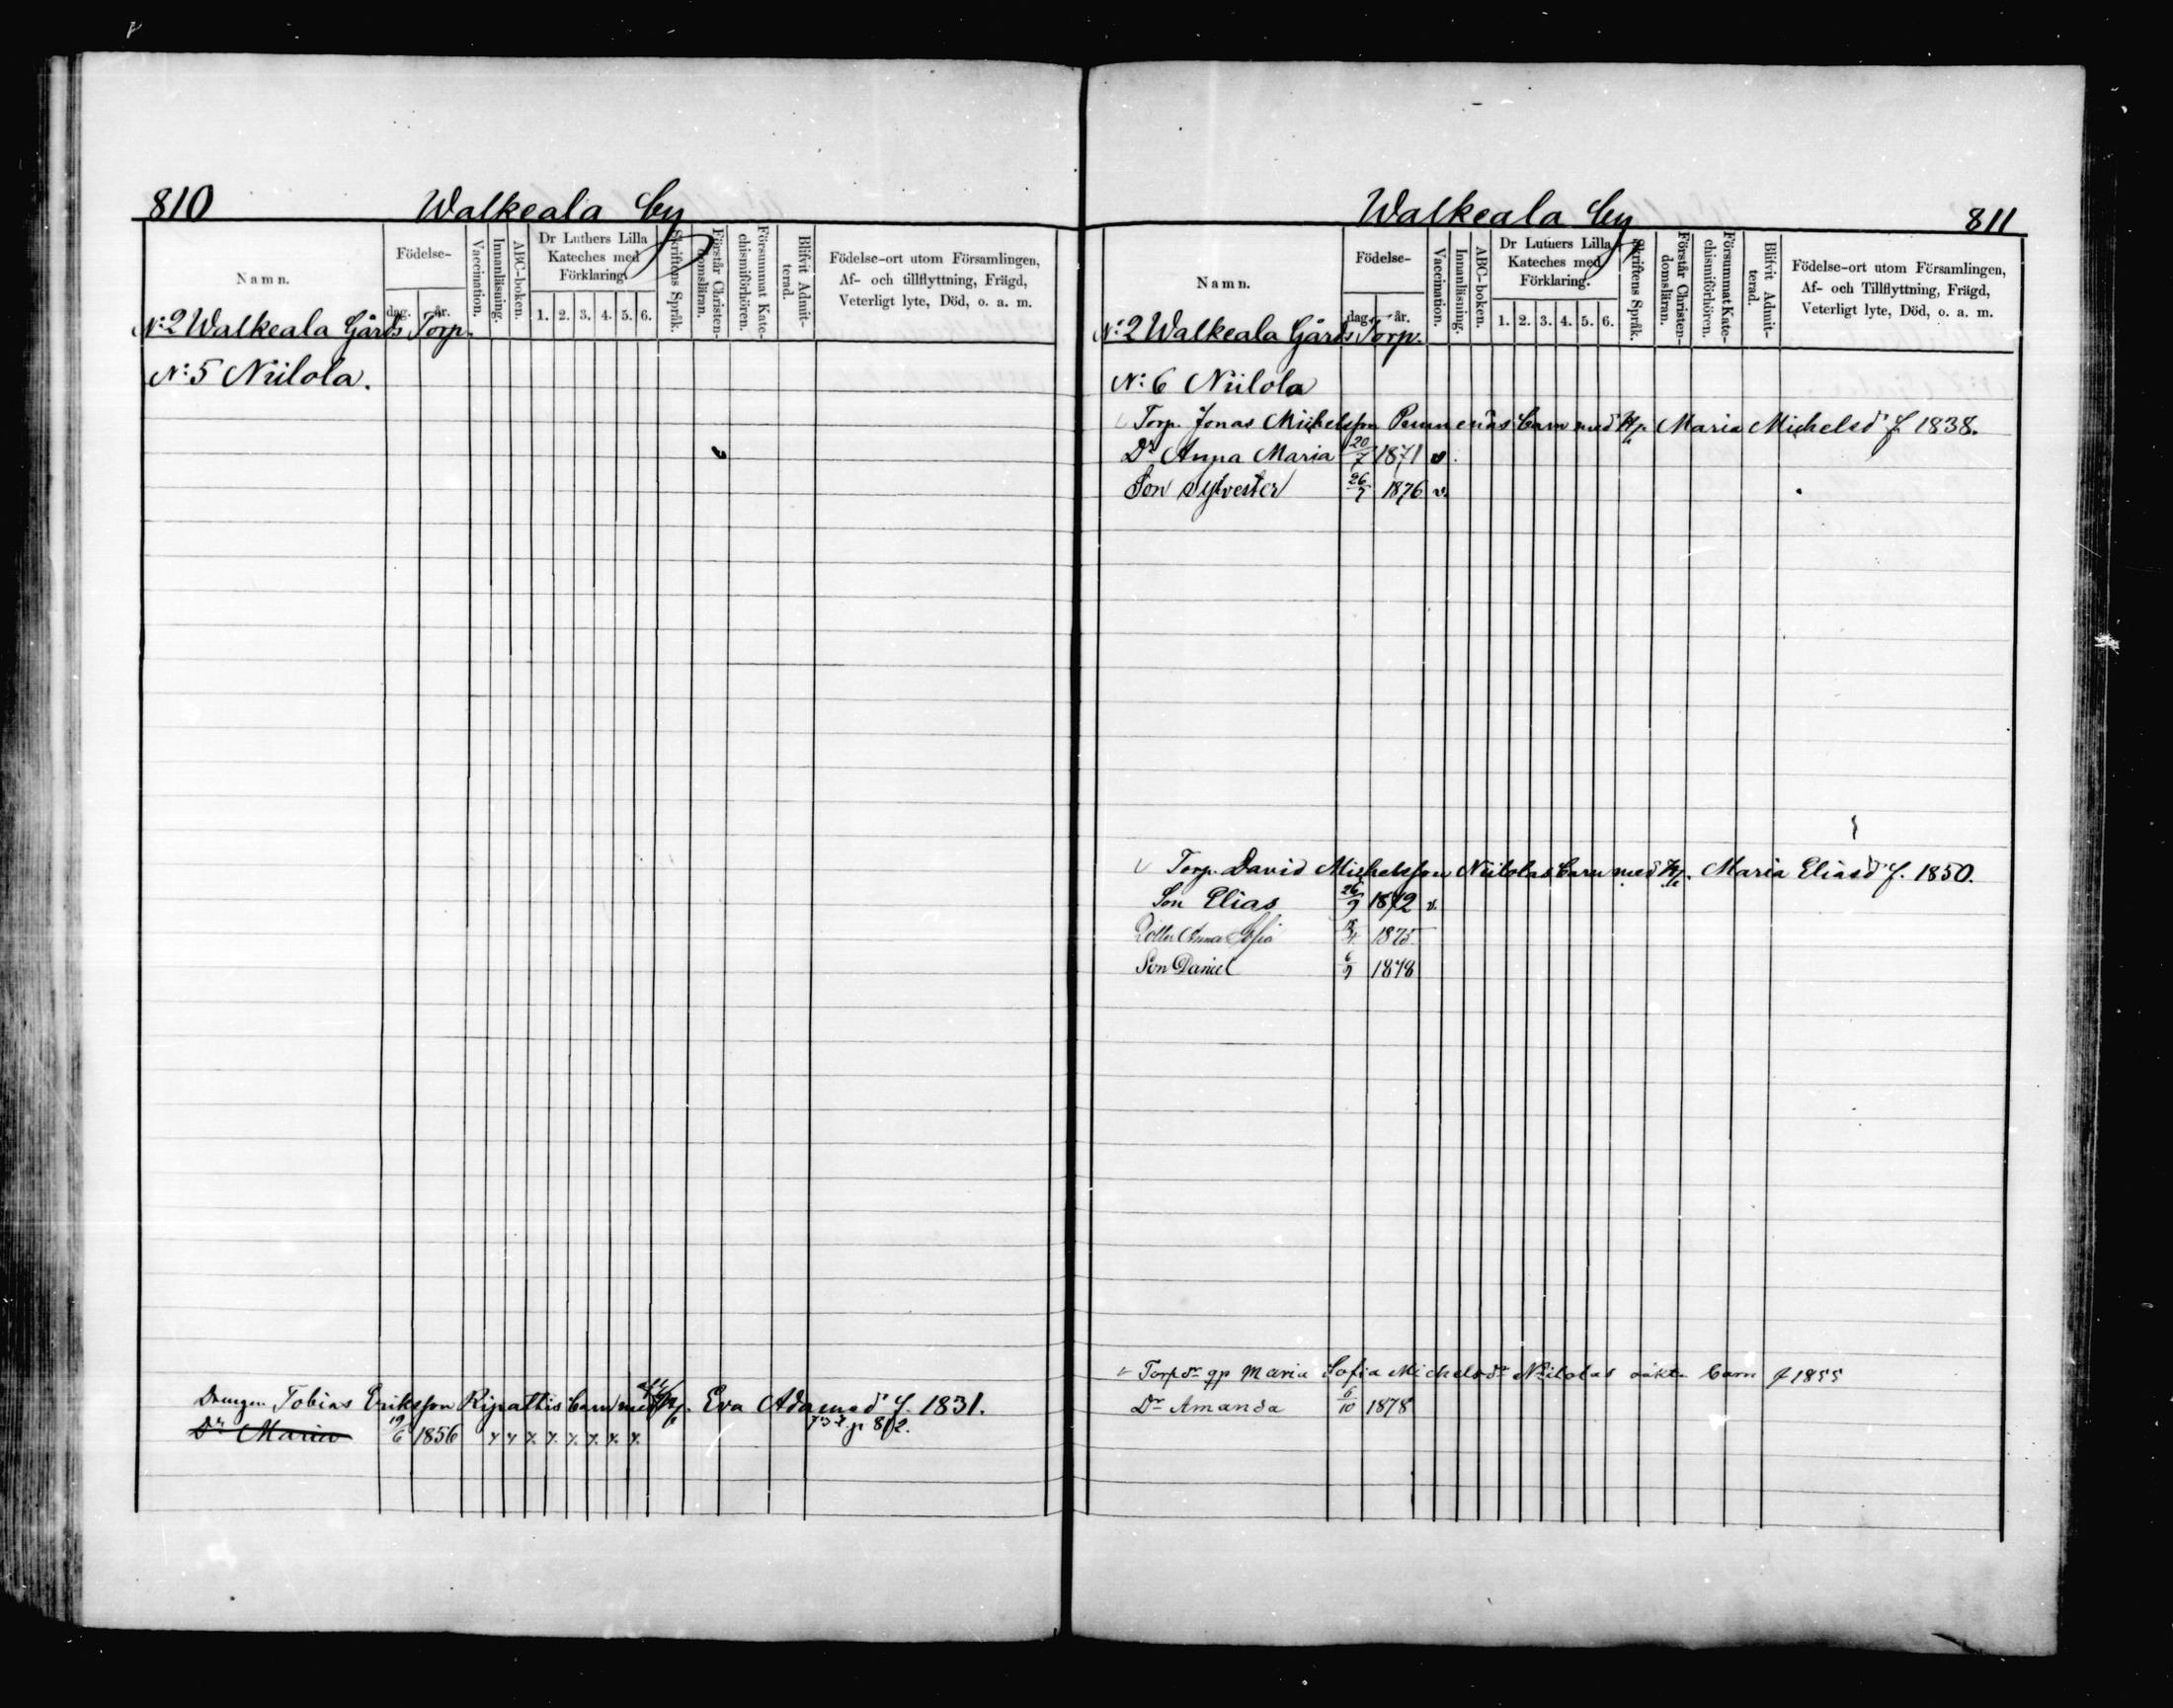 810
Walkeala by
Namn.
Födelse-
dag.
år.
Vaccination.
Innanläsning.
ABC-boken.
Dr Luthers Lilla
Kateches med
Förklaring.
1. 2. 3. 4. 5. 6.
Skriftens Språk.
Förstår Christen-
domsläran.
Försummat Kate-
chismiförhören.
Blifvit Admit-
terad.
Födelse-ort utom Församlingen,
Af- och tillflyttning, Frägd,
Veterligt lyte, Död, o. a. m.
N:2 Walkeala Gårds Torp.
N:5 Niilola.
Drengen Tobias Eriksson Ripattis barn med Eva Adamsdr f. 1831.
Dr Maria 19/6 1856 p 812.
Walkeala by
811
Namn.
Födelse-
dag.
år.
Vaccination.
Innanläsning.
ABC-boken.
Dr Luthers Lilla
Kateches med
Förklaring.
1. 2. 3. 4. 5. 6.
Skriftens Språk.
Förstår Christen-
domsläran.
Försummat Kate-
chismiförhören.
Blifvit Admit-
terad.
Födelse-ort utom Församlingen,
Af- och Tillflyttning, Frägd,
Veterligt lyte, Död, o. a. m.
N:2 Walkeala Gårds Torp.
N:6 Niilola
Torp. Jonas Michelsson barn med Maria Michelsdr f. 1838.
Dr Anna Maria 20/7 1871 v.
Son Sylvester 26/7 1876 v.
Torp. David Michelsson Niilolas barn med Maria Eliasdr f. 1850.
Son Elias 26/9 1872 v.
Dotter Anna Sofia 1875
Son Daniel 6/9 1878
Torpdr Maria Sofia Michelsdr Niilolas oäkta barn f 1855
Dr Amanda 6/10 1878